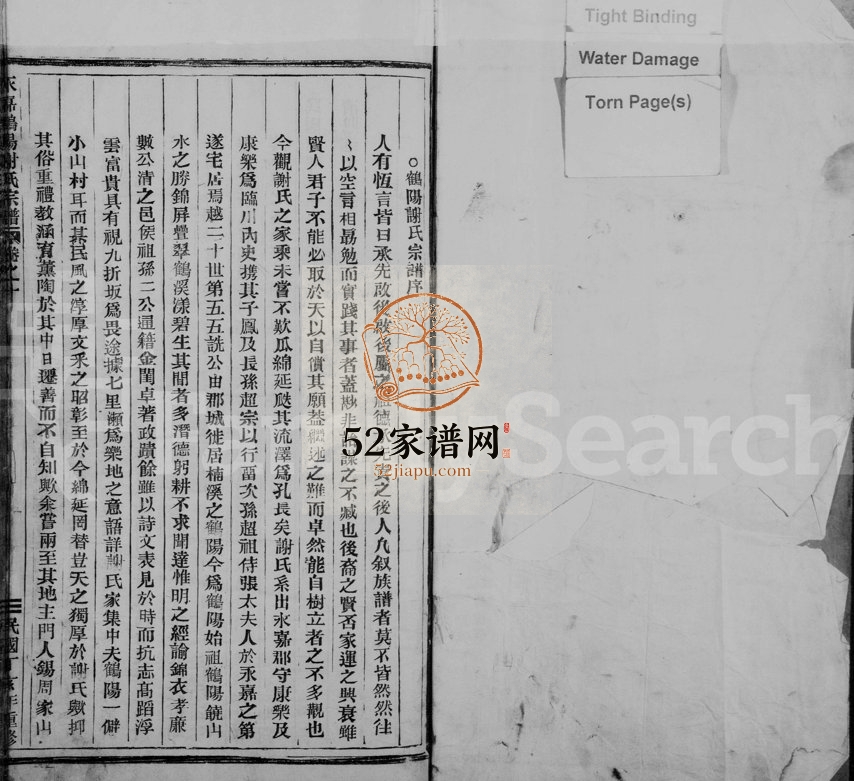 Tight Binding
Water Damage
Torn Page(s)
鶴陽謝氏宗譜序
人有恆言皆曰承先啟後之後人凡叙族譜者莫不皆然然往
以空言相勗勉而實踐其事者蓋尠非之不臧也後裔之賢否家運之興衰雖
賢人君子不能必取於天以自償其願葢繼述之難而卓然能自樹立者之不多覯也
今觀謝氏之家乘未嘗不歎瓜綿延瓞其流澤爲孔長矣謝氏系出永嘉郡守康樂及
康樂爲臨川內史携其子鳳及長孫超宗以行畱次孫超祖侍張太夫人於永嘉之第
遂宅居焉越二十世第五五詵公由郡城徙居楠溪之鶴陽今爲鶴陽始祖鶴陽饒山
水之勝錦屏疊翠鶴溪漾碧生其間者多潛德躬耕不求聞達惟明之經諭錦衣孝廉
數公清之邑侯祖孫二公通籍金閨卓著政蹟餘雖以詩文表見於時而抗志高蹈浮
雲富貴具有視九折坂爲畏途據七里瀨爲樂地之意語詳謝氏家集中夫鶴陽一僻
小山村耳而其民風之淳厚文釆之昭彰至於今綿延罔替豈天之獨厚於謝氏歟抑
其俗重禮教涵育薰陶於其中日遷善而不自知歟余嘗兩至其地主門人錫周家山
永嘉鶴陽謝氏宗譜
卷之一
民國十年重修
52家谱网
52jiapu.com
Search